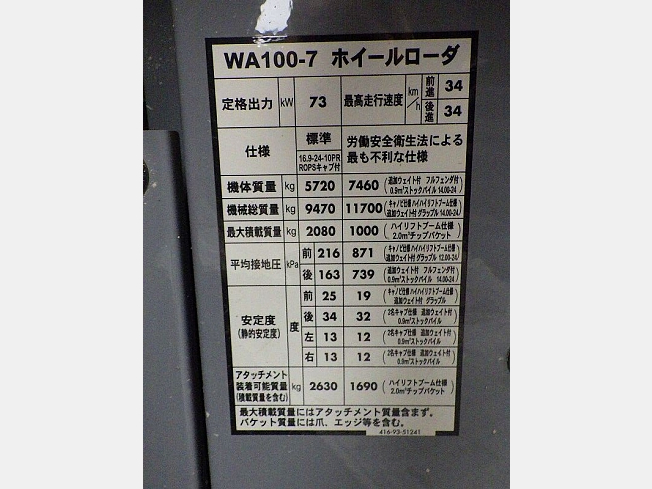 WA100-7 ホイールローダ
定格出力 kW 73 最高走行速度 km/h 前進 34
後進 34
仕様 標準 16.9-24-10PR ROPSキャブ付 労働安全衛生法による
最も不利な仕様
機体質量 kg 5720 7460 (追加ウェイト付 フルフェンダ付
0.9m³ストックパイル 14.00-24)
機械総質量 kg 9470 11700 (キャノピ仕様 ハイリフトブーム仕様
追加ウェイト付 グラップル 14.00-24)
最大積載質量 kg 2080 1000 (ハイリフトブーム仕様
2.0m³チップバケット)
平均接地圧 kPa 前 216 871 (キャブ仕様 ハイリフトブーム仕様
追加ウェイト付 グラップル 12.00-24)
後 163 739 (追加ウェイト付 フルフェンダ付
0.9m³ストックパイル 14.00-24)
安定度
(静的安定度) 度 前 25 19 (キャノピ仕様 ハイリフトブーム仕様
追加ウェイト付 グラップル)
後 34 32 (2名キャブ仕様 追加ウェイト付
0.9m³ストックパイル)
左 13 12 (2名キャブ仕様 追加ウェイト付
0.9m³ストックパイル)
右 13 12 (2名キャブ仕様 追加ウェイト付
0.9m³ストックパイル)
アタッチメント
装着可能質量
(積載質量を含む) kg 2630 1690 (ハイリフトブーム仕様
2.0m³チップバケット)
最大積載質量にはアタッチメント質量含まず。
バケット質量には爪、エッジ等を含む。
416-93-51241